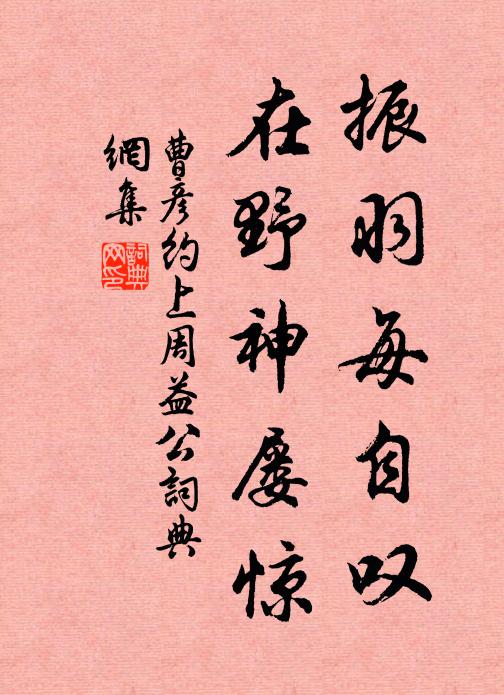 振羽每自叹
在野神屡惊
曹彦约上周益公詞典
網集
詞典
网印